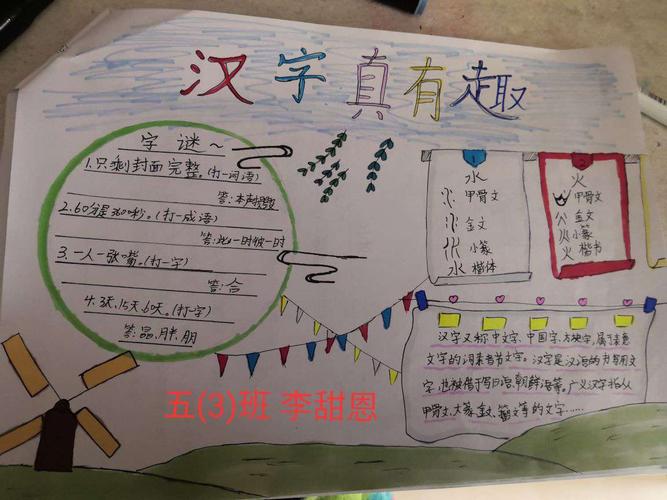 汉字真有趣
字谜~
1.只剩封面完整。(打一词语)
答:本来
2.60分是3600秒。(打一成语)
答:此一时彼一时
3.一人一张嘴。(打一字)
答:合
4.3天,15天,60天。(打一字)
答:晶、胖、朋
水
甲骨文
金文
小篆
水 楷体
火
甲骨文
金文
火 小篆
火 楷书
汉字又称中文字、中国字、方块字,属于表意
文字的词素音节文字。汉字是汉语的书写用文
字,也被借于写日语、朝鲜语等。广义汉字指从
甲骨文、大篆、金文、籀文等的文字……
五(3)班 李甜恩